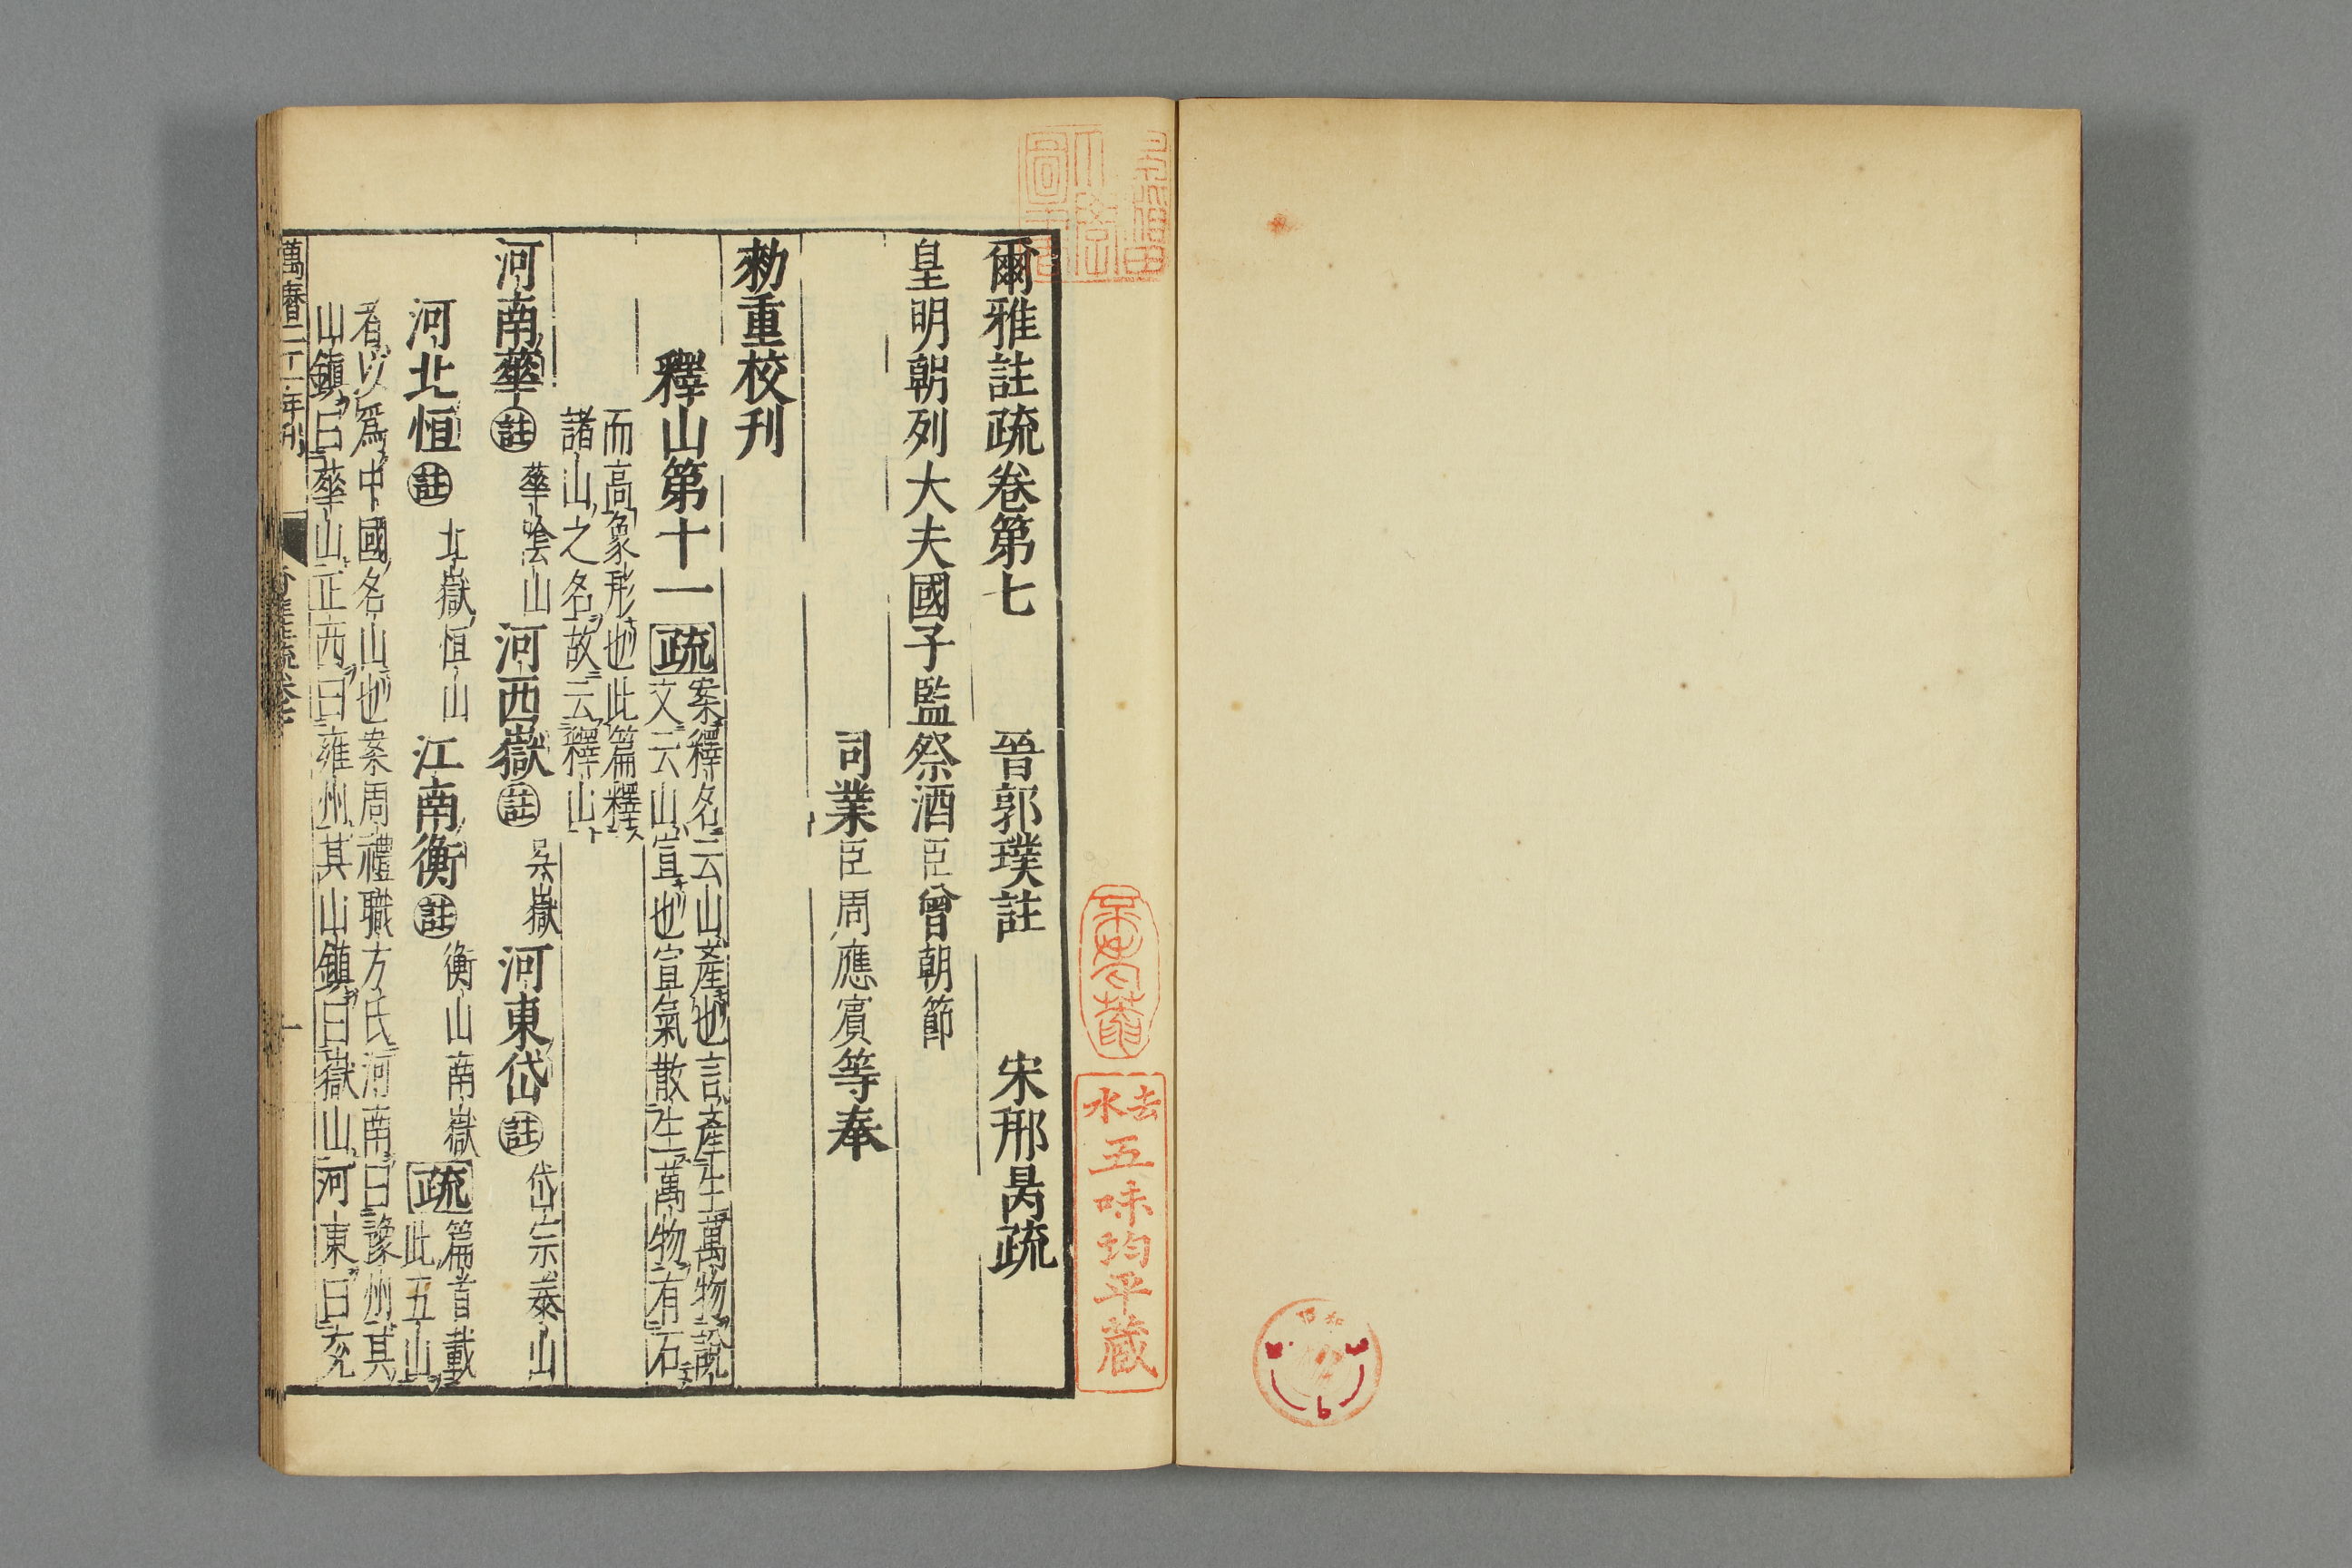 爾雅註疏卷第七
晉郭璞註
宋邢昺疏
皇明朝列大夫國子監祭酒臣曾朝節
司業臣周應賓等奉
勑重校刊
釋山第十一
疏
案釋名云山產也言產生萬物說
文云山宣也宣氣散生萬物有石
而高象形也此篇釋
諸山之名故云釋山
河南華註
華陰山
河西嶽註
吳嶽
河東岱註
岱宗泰山
河北恒註
北嶽恒山
江南衡註
衡山南嶽
疏
篇首載
此五山
者以爲中國名山也案周禮職方氏河南曰豫州其
山鎮曰華山正西曰雍州其山鎮曰嶽山河東曰兖
萬曆二十一年刊
爾雅註疏卷七
一
去水
五味均平藏